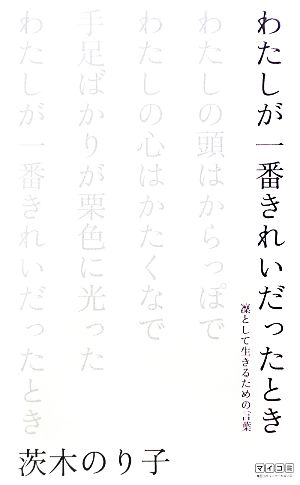 わたしが一番きれいだったとき
凜として生きるための言葉
わたしの頭はからっぽで
わたしの心はかたくなで
手足ばかりが栗色に光った
わたしが一番きれいだったとき
茨木のり子
マイコミ